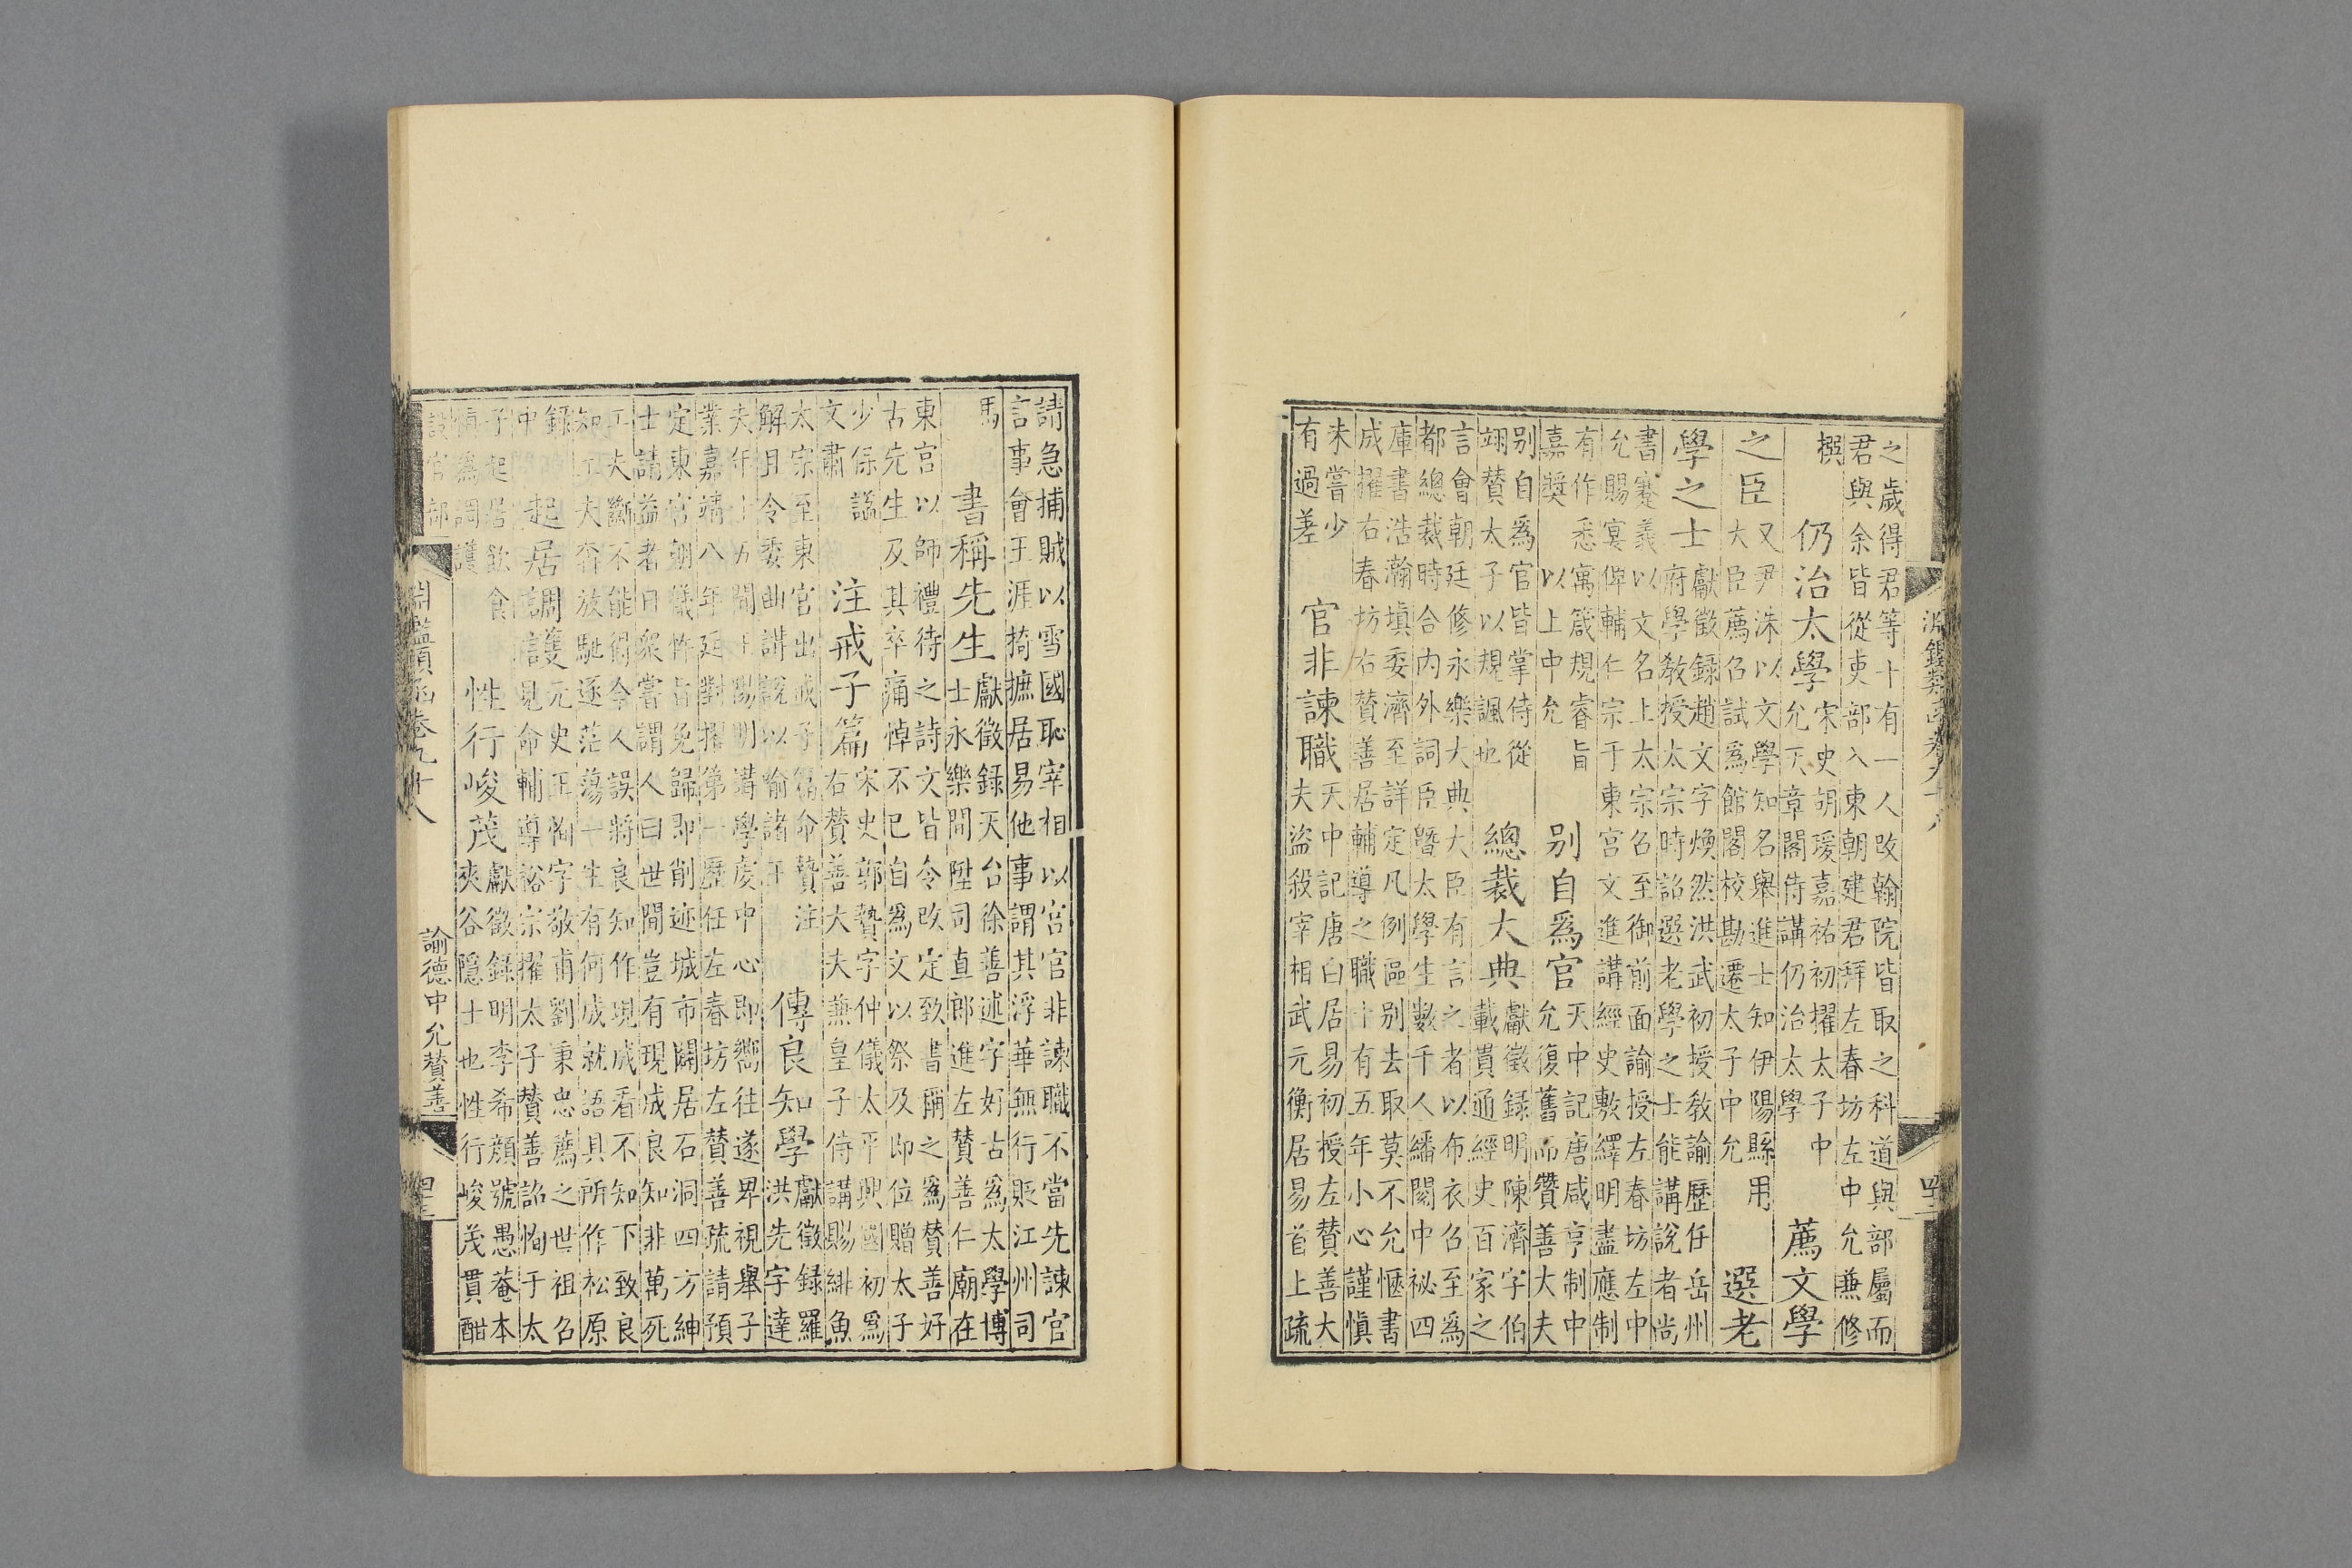 之歲得君等十有一人改翰院皆取之科道與部屬而
君與余皆從吏部入東朝建君拜左春坊左中允兼修
撰 仍治太學 宋史胡瑗嘉祐初擢太子中
允天章閣侍講仍治太學 薦文學
之臣 又尹洙以文學知名舉進士知伊陽縣用
大臣薦召試爲館閣校勘遷太子中允 選老
學之士 獻徵錄趙文字煥然洪武初授教諭歷任岳州
府學教授太宗時詔選老學之士能講說者尚
書蹇義以文名上太宗召至御前面諭授左春坊左中
允賜宴俾輔仁宗于東宮文進講經史敷繹明盡應制
有作悉寓箴規睿旨
嘉奬 以上中允 别自爲官 天中記唐咸亨制中
允復舊而贊善大夫
别自爲官皆掌侍從
翊贊太子以規諷也 總裁大典 獻徵録明陳濟字伯
載貫通經史百家之
言會朝廷修永樂大典大臣有言之者以布衣召至爲
都總裁時合内外詞臣曁太學生數千人繙閱中祕四
庫書浩瀚填委濟至詳定凡例區别去取莫不允愜書
成擢右春坊右贊善居輔導之職十有五年小心謹慎
未嘗少
有過差 官非諫職 天中記唐白居易初授左贊善大
夫盜殺宰相武元衡居易首上疏
請急捕賊以雪國恥宰相以宮官非諫職不當先諫官
言事會王涯掎摭居易他事謂其浮華無行貶江州司
馬 書稱先生 獻徵錄天台徐善述字好古爲太學博
士永樂間陞司直郎進左贊善仁廟在
東宮以師禮待之詩文皆令改定致書稱之爲贊善好
古先生及其卒痛悼不已自爲文以祭及即位贈太子
少保謚
文肅 注戒子篇 宋史郭贄字仲儀太平興國初爲
右贊善大夫兼皇子侍講賜緋魚
太宗至東宮出戒子篇命贄注
解且令委曲講說以喻諸王 傳良知學 獻徵錄羅
洪先字達
夫年十五聞王陽明講學虔中心即嚮往遂卑視舉子
業嘉靖八年廷對擢第一歷任左春坊左贊善疏請預
定東宮朝儀忤旨免歸即削迹城市闢居石洞四方紳
士請益者日衆嘗謂人曰世間豈有現成良知非萬死
工夫斷不能得今人誤將良知作現成看不知下致良
知工夫奔放馳逐茫蕩一生有何成就語具所作松原
録
中 起居調護 元史王恂字敬甫劉秉忠薦之世祖召
見命輔導裕宗擢太子贊善詔恂于太
子起居飲食
慎爲調護 性行峻茂 獻徵錄明李希顔號愚菴本
夾谷隱士也性行峻茂貫酣
設官部
淵鑑類函卷九十八
諭德中允贊善